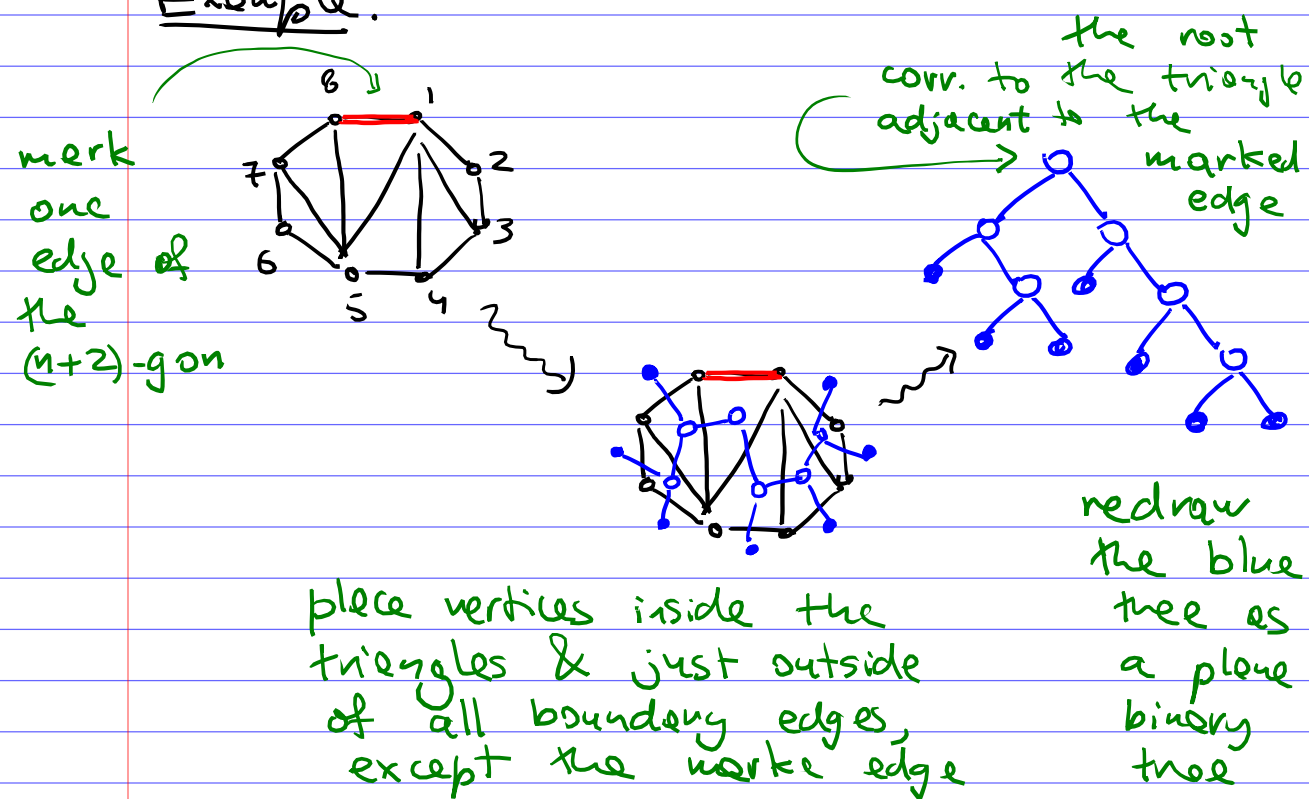 Example.
mark
one
edge of
the
(n+2)-gon
8 1
7 2
6 3
5 4
the root
corr. to the triangle
adjacent to the
marked
edge
place vertices inside the
triangles & just outside
of all boundary edges,
except the marke edge
redraw
the blue
tree as
a plane
binary
tree